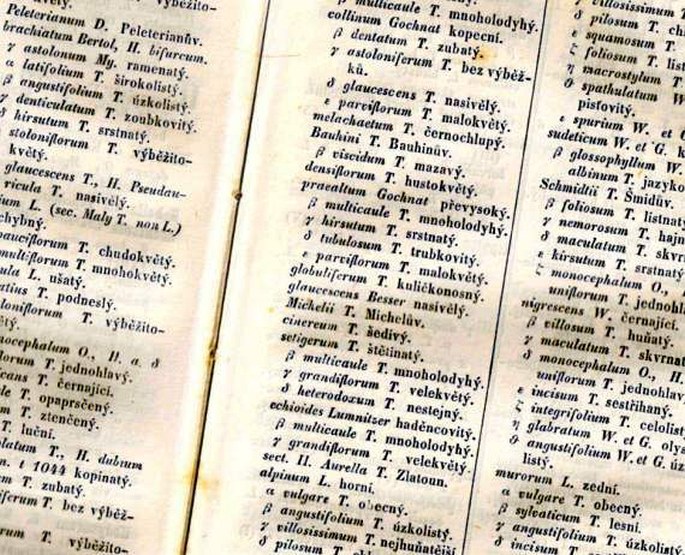 výběžito-
Peleterianum D. Peleterianův.
brachiatum Bertol, H. bifurcum.
γ astolonum Mg. ramenatý.
α latifolium T. širokolistý.
β angustifolium T. úzkolistý.
γ denticulatum T. zoubkovitý.
δ hirsutum T. srstnatý.
stoloniflorum T. výběžito-
květý.
glaucescens T., H. Pseudau-
ricula T. nasivělý.
ium L. (sec. Maly T. non L.)
chybný.
pauciflorum T. chudokvětý.
multiflorum T. mnohokvětý.
ula L. ušatý.
atius T. podneslý.
loniflorum T. výběžito-
ětý.
nocephalum O., H. a. δ
lorum T. jednohlavý.
icans T. černající.
le T. opaprsčený.
m T. ztenčený.
T. luční.
olatum T., H. dubium
n. i 1044 kopinatý.
m T. zubatý.
iferum T. bez výběž-
rum T. výběžito-
multicaule T. mnoholodyhý.
collinum Gochnat kopecní.
β dentatum T. zubatý.
γ astoloniferum T. bez výběž-
ků.
δ glaucescens T. nasivělý.
ε parviflorum T. malokvětý.
melachaetum T. černochlupý.
Bauhini T. Bauhinův.
β viscidum T. mazavý.
densiflorum T. hustokvětý.
praealtum Gochnat převysoký.
β multicaule T. mnoholodyhý.
γ hirsutum T. srstnatý.
δ tubulosum T. trubkovitý.
ε parviflorum T. malokvětý.
globuliferum T. kuličkonosný.
glaucescens Besser nasivělý.
Michelii T. Michelův.
cinereum T. šedivý.
setigerum T. štětinatý.
β multicaule T. mnoholodyhý.
γ grandiflorum T. velekvětý.
δ heterodoxum T. nestejný.
echioides Lumnitzer haděncovitý.
β multicaule T. mnoholodyhý.
γ grandiflorum T. velekvětý.
sect. II. Aurella T. Zlatoun.
alpinum L. horní.
α vulgare T. obecný.
β angustifolium T. úzkolistý.
γ villosissimum T. nejhuňatější
δ pilosum T.
villosissimum T.
δ pilosum T. ch
ε squamosum T.
ζ foliosum T. list
η macrostylum T.
ϑ spathulatum W
pisťovitý.
ε spurium W. et G
sudeticum W. et G. k
β glossophyllum W.
albinum T. jazyko
Schmidtii T. Šmidův.
β foliosum T. listnatý
γ nemorosum T. hajn
δ maculatum T. skvrn
ε hirsutum T. srstnatý
ζ monocephalum O., H
uniflorum T. jednohl
nigrescens W. černající.
β villosum T. huňatý.
γ maculatum T. skvrnat
δ monocephalum O., H.
uniflorum T. jednohlav
ε incisum T. sestříhaný.
ζ integrifolium T. celolist
η glabratum W. et G. olys
ϑ angustifolium W. et G. úz
listý.
murorum L. zední.
α vulgare T. obecný.
β sylvaticum T. lesní.
γ angustifolium T. úzkolistý
δ incisum T.